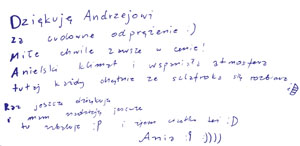 Dziękuję Andrzejowi
za cudowne odprężenie :)
Miłe chwile zawsze w cenie!
Anielski klimat i wspaniała atmosfera
tutaj każdy chętnie ze szlafroka się rozbiera
Raz jeszcze dziękuję
i mam nadzieję jeszcze
tu :P i :D
Ania :) :))))